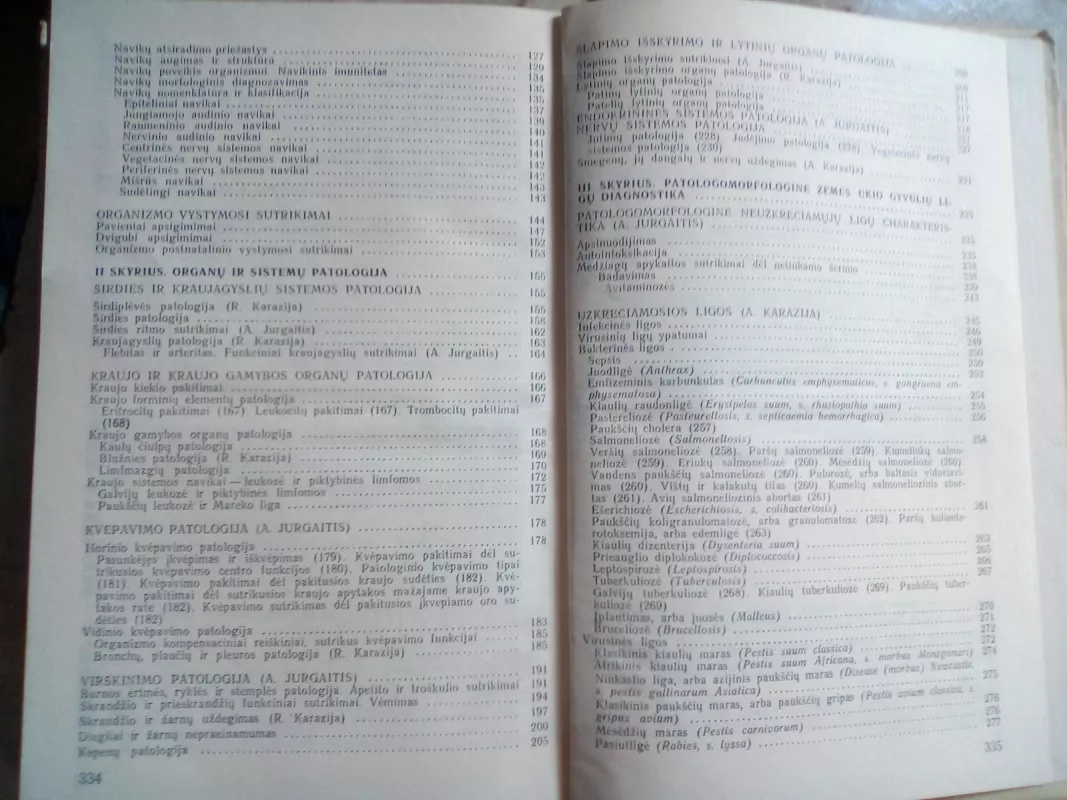 Navikų atsiradimo priežastys 127
Navikų augimas ir struktūra 129
Navikų poveikis organizmui. Navikinis imunitetas 134
Navikų morfologinis diagnozavimas 135
Navikų nomenklatūra ir klasifikacija 135
Epiteliniai navikai 137
Jungiamojo audinio navikai 139
Raumeninio audinio navikai 140
Nervinio audinio navikai 141
Centrinės nervų sistemos navikai 141
Vegetacinės nervų sistemos navikai 142
Periferinės nervų sistemos navikai 142
Mišrūs navikai 143
Sudėtingi navikai 143
ORGANIZMO VYSTYMOSI SUTRIKIMAI 144
Pavieniai apsigimimai 147
Dvigubi apsigimimai 152
Organizmo postnatalinio vystymosi sutrikimai 153
II SKYRIUS. ORGANŲ IR SISTEMŲ PATOLOGIJA 155
ŠIRDIES IR KRAUJAGYSLIŲ SISTEMOS PATOLOGIJA 155
Širdiplėvės patologija (R. Karazija) 155
Širdies patologija 158
Širdies ritmo sutrikimai (A. Jurgaitis) 162
Kraujagyslių patologija (R. Karazija) 163
Flebitas ir arteritas. Funkciniai kraujagyslių sutrikimai (A. Jurgaitis) 164
KRAUJO IR KRAUJO GAMYBOS ORGANŲ PATOLOGIJA 166
Kraujo kiekio pakitimai 166
Kraujo forminių elementų patologija 167
Eritrocitų pakitimai (167). Leukocitų pakitimai (167). Trombocitų pakitimai
(168)
Kraujo gamybos organų patologija 168
Kaulų čiulpų patologija 168
Blužnies patologija (R. Karazija) 169
Limfmazgių patologija 170
Kraujo sistemos navikai — leukozė ir piktybinės limfomos 172
Galvijų leukozė ir piktybinės limfomos 175
Paukščių leukozė ir Mareko liga 177
KVĖPAVIMO PATOLOGIJA (A. JURGAITIS) 178
Išorinio kvėpavimo patologija 178
Pasunkėjęs įkvėpimas ir iškvėpimas (179). Kvėpavimo pakitimai dėl su-
trikusios kvėpavimo centro funkcijos (180). Patologinio kvėpavimo tipai
(181). Kvėpavimo pakitimai dėl pakitusios kraujo sudėties (182). Kvė-
pavimo pakitimai dėl sutrikusios kraujo apytakos mažajame kraujo apy-
takos rate (182). Kvėpavimo sutrikimas dėl pakitusios įkvepiamo oro su-
dėties (182)
Vidinio kvėpavimo patologija 183
Organizmo kompensaciniai reiškiniai, sutrikus kvėpavimo funkcijai 185
Bronchų, plaučių ir pleuros patologija (R. Karazija) 185
VIRŠKINIMO PATOLOGIJA (A. JURGAITIS) 191
Burnos ertmės, ryklės ir stemplės patologija. Apetito ir troškulio sutrikimai 191
Skrandžio ir prieskrandžių funkciniai sutrikimai. Vėmimas 194
Skrandžio ir žarnų uždegimas (R. Karazija) 197
Diegliai ir žarnų nepraeinamumas 200
Kepenų patologija 205
334
ŠLAPIMO IŠSKYRIMO IR LYTINIŲ ORGANŲ PATOLOGIJA
Šlapimo išskyrimo sutrikimai (A. Jurgaitis)
Šlapimo išskyrimo organų patologija (R. Karazija)
Lytinių organų patologija
Patinų lytinių organų patologija
Patelių lytinių organų patologija
ENDOKRININĖS SISTEMOS PATOLOGIJA (A. JURGAITIS)
NERVŲ SISTEMOS PATOLOGIJA
Jutimų patologija (228). Judėjimo patologija (228). Vegetacinės nervų
sistemos patologija (230)
Smegenų, jų dangalų ir nervų uždegimas (A. Karazija) 231
III SKYRIUS. PATOLOGOMORFOLOGINĖ ŽEMĖS ŪKIO GYVULIŲ LI-
GŲ DIAGNOSTIKA 235
PATOLOGOMORFOLOGINĖ NEUŽKREČIAMŲJŲ LIGŲ CHARAKTERIS-
TIKA (A. JURGAITIS) 235
Apsinuodijimas 235
Autointoksikacija 238
Medžiagų apykaitos sutrikimai dėl netinkamo šėrimo 238
Badavimas 239
Avitaminozės 243
UŽKREČIAMOSIOS LIGOS (A. KARAZIJA) 245
Infekcinės ligos 246
Virusinių ligų ypatumai 249
Bakterinės ligos 250
Sepsis 250
Juodligė (Anthrax) 252
Emfizeminis karbunkulas (Carbunculus emphysematicus, s. gangraena em-
physematosa) 254
Kiaulių raudonligė (Erysipelas suum, s. rhusiopathia suum) 255
Pastereliozė (Pasteurellosis, s. septicaemia hemorrhagica) 256
Paukščių cholera (257)
Salmoneliozė (Salmonellosis) 258
Veršių salmoneliozė (258). Paršų salmoneliozė (259). Kumeliukų salmo-
neliozė (259). Eriukų salmoneliozė (260). Mėsėdžių salmoneliozė (260).
Vandens paukščių salmoneliozė (260). Pulorozė, arba baltasis viduriavi-
mas (260). Vištų ir kalakutų tifas (260). Kumelių salmoneliozinis abor-
tas (261). Avių salmoneliozinis abortas (261)
Ešerichiozė (Escherichiosis, s. colibacteriosis) 261
Paukščių koligranulomatozė, arba granulomatozė (262). Paršų koliente-
rotoksemija, arba edemligė (263)
Kiaulių dizenterija (Dysenteria suum) 263
Prieauglio diplokokozė (Diplococcosis) 265
Leptospirozė (Leptospirosis) 266
Tuberkuliozė (Tuberculosis) 267
Galvijų tuberkuliozė (268). Kiaulių tuberkuliozė (269). Paukščių tuber-
kuliozė (269)
Įplautimas, arba įnosės (Malleus) 270
Bruceliozė (Brucellosis) 271
Virusinės ligos 272
Klasikinis kiaulių maras (Pestis suum classica) 272
Afrikinis kiaulių maras (Pestis suum Africana, s. morbus Montgomeri) 274
Niukaslio liga, arba azijinis paukščių maras (Disease (morbus) Newcastle,
s. pestis gallinarum Asiatica) 275
Klasikinis paukščių maras, arba paukščių gripas (Pestis avium classica, s.
gripus avium) 276
Mėsėdžių maras (Pestis carnivorum) 276
Pasiutligė (Rabies, s. lyssa) 277
335